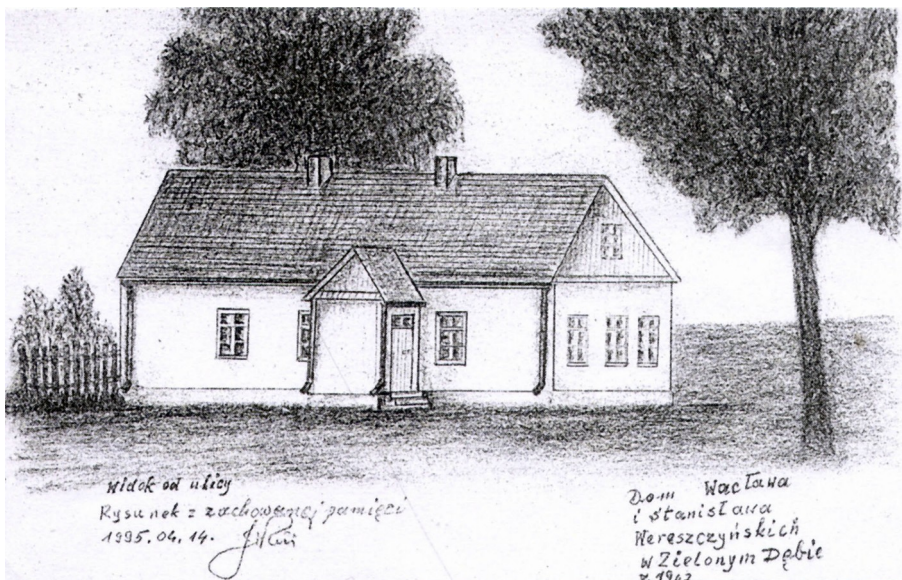 Widok od ulicy
Rysunek z zachowanej pamięci
1995.04.14.
Dom Wacława
i Stanisława
Wereszczyńskich
w Zielonym Dębie
z 1942